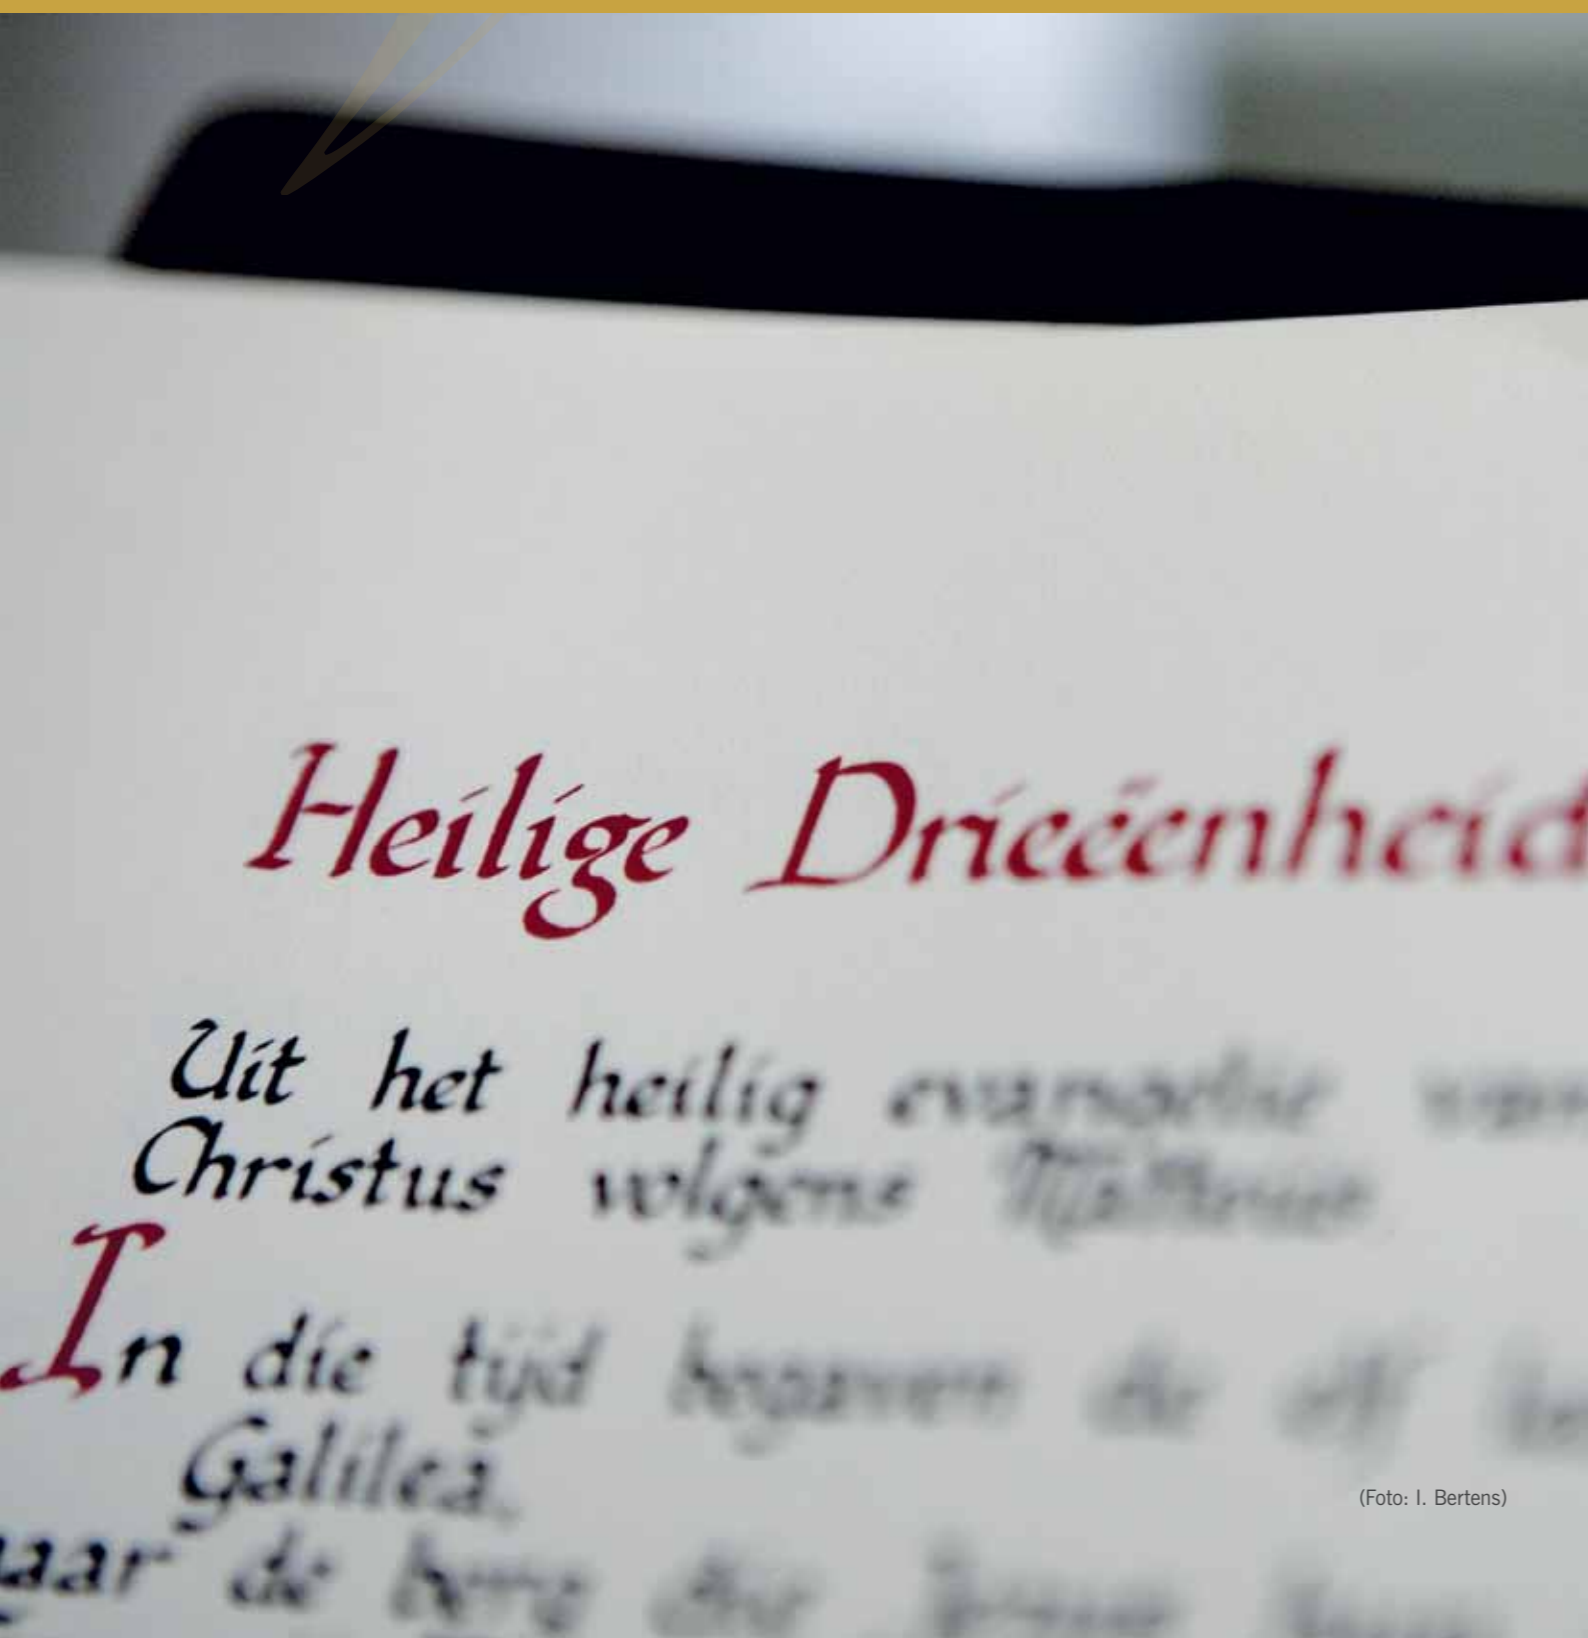 Heilige Drieëenheid
Uit het heilig evangelie van
Christus volgens Matteüs
In die tijd begaven de elf
Galilea.
naar de berg die Jezus
(Foto: I. Bertens)